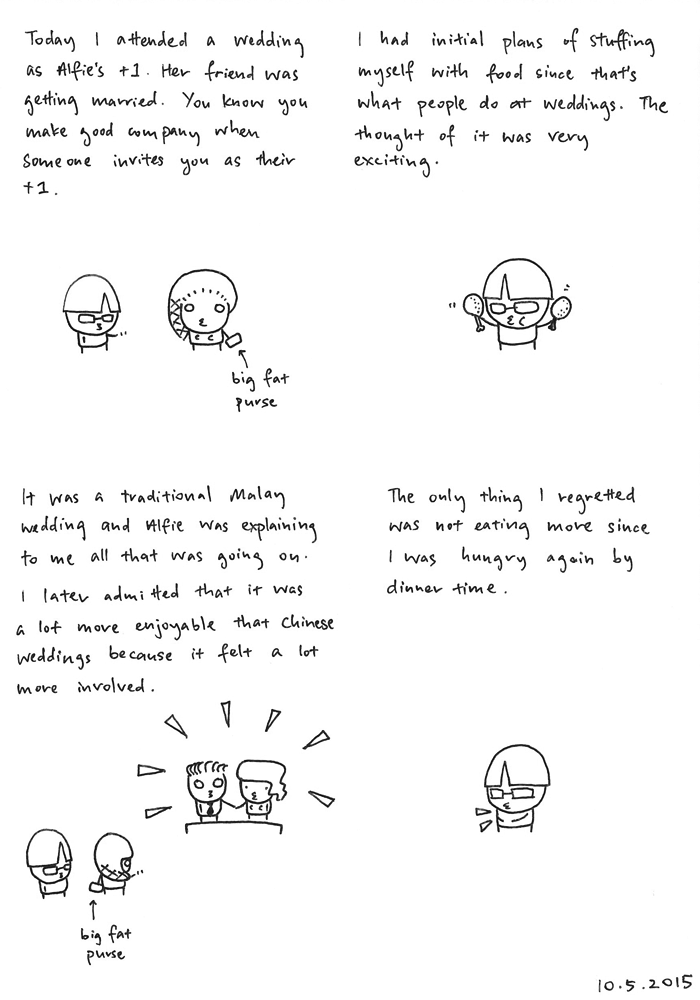 Today I attended a wedding
as Alfie's +1. Her friend was
getting married. You know you
make good company when
Someone invites you as their
+1.
big fat
purse
I had initial plans of stuffing
myself with food since that's
what people do at weddings. The
thought of it was very
exciting.
It was a traditional Malay
wedding and Alfie was explaining
to me all that was going on.
I later admitted that it was
a lot more enjoyable that Chinese
weddings because it felt a lot
more involved.
big fat
purse
The only thing I regretted
was not eating more since
I was hungry again by
dinner time.
10.5.2015